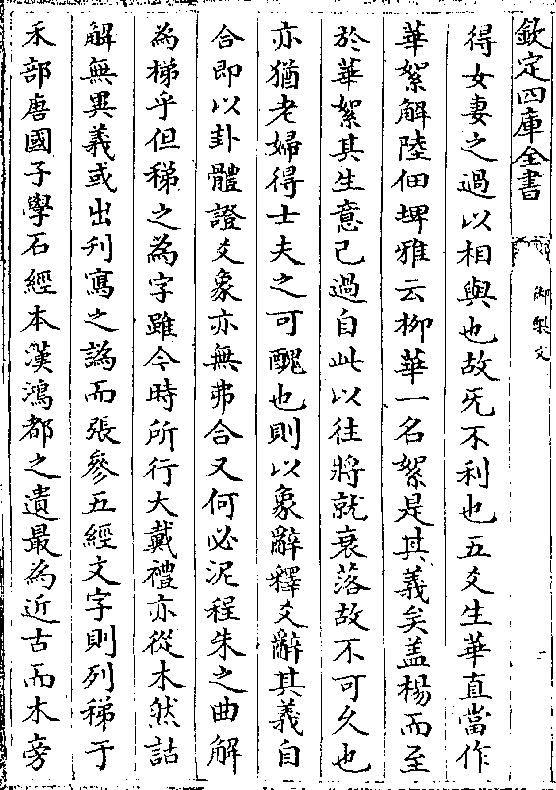 欽定四庫全書
御製文
得女妻之過以相與也故旡不利也五爻生華直當作
華絮解陸佃埤雅云柳華一名絮是其義矣盖楊而至
於華絮其生意已過自此以往將就衰落故不可久也
亦猶老婦得士夫之可醜也則以象辭釋爻辭其義自
合即以卦體證爻象亦無弗合又何必泥程朱之曲解
為梯乎但稊之為字雖今時所行大戴禮亦從木然詁
解無異義或出刋寫之譌而張參五經文字則列稊于
禾部唐國子學石經本漢鴻都之遺最為近古而木旁